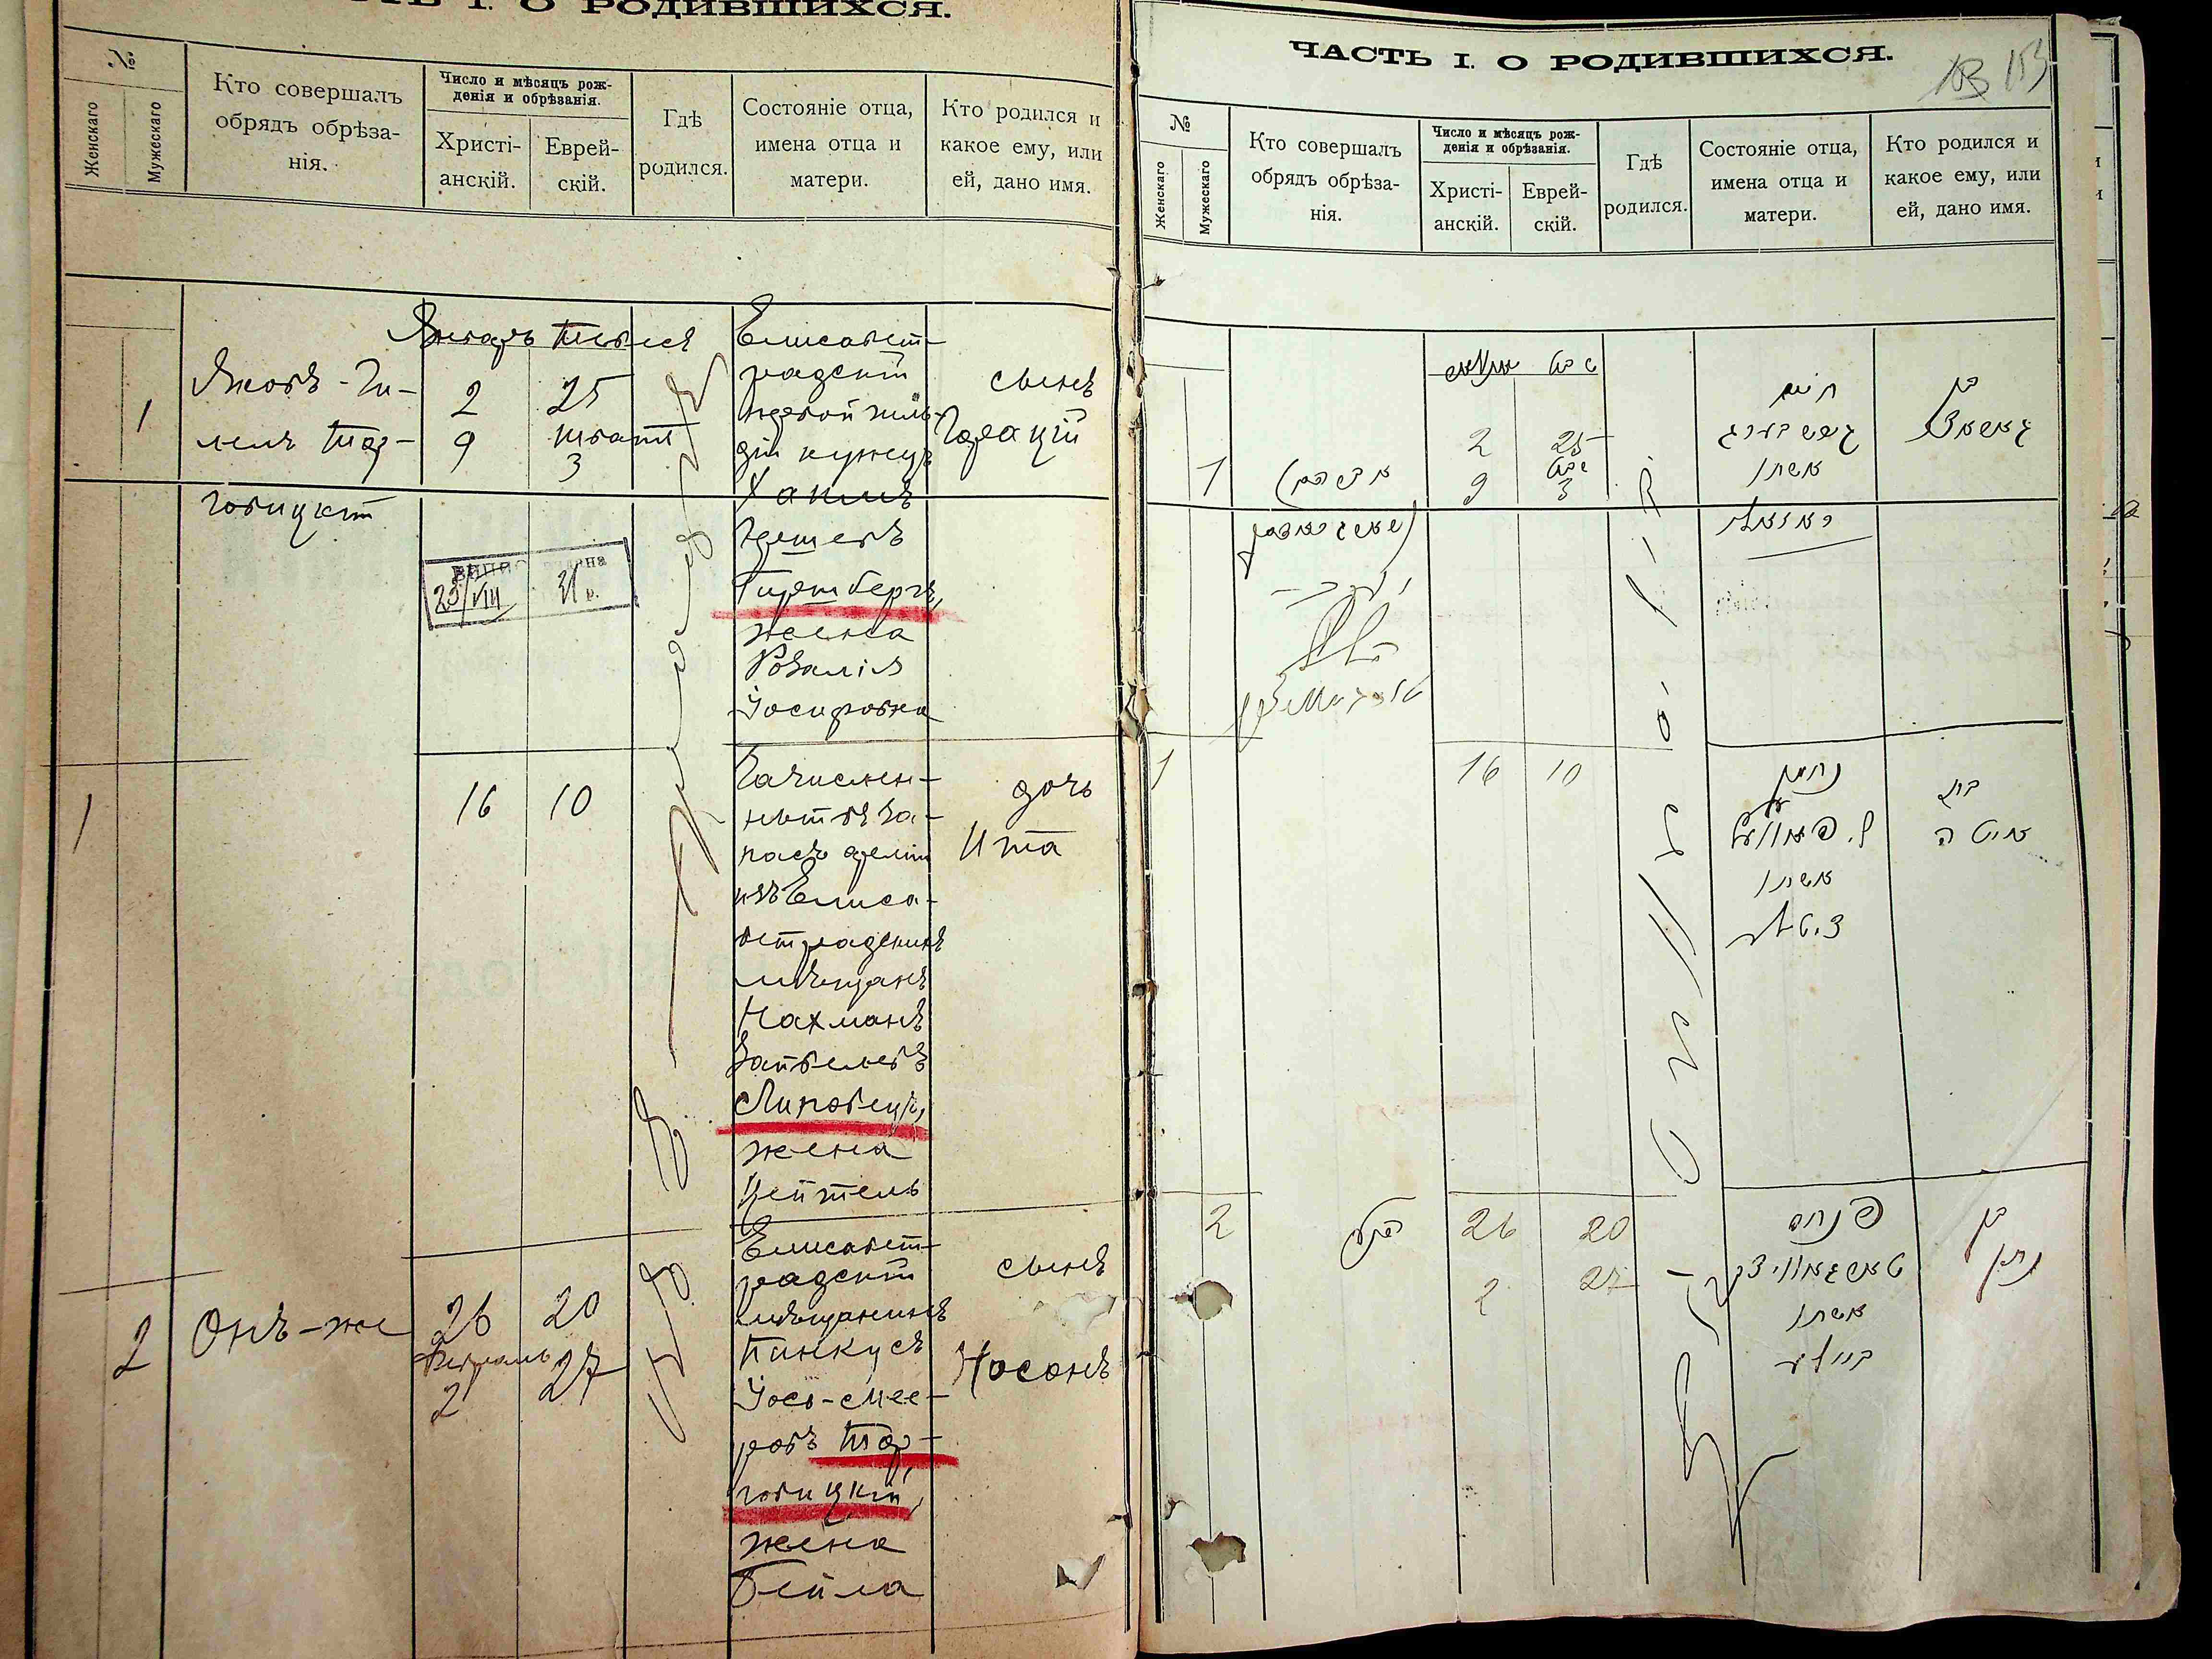 ЧАСТЬ I. О РОДИВШИХСЯ.
№
Женскаго
Мужескаго
Кто совершалъ
обрядъ обрѣза-
нія.
Число и мѣсяцъ рож-
денія и обрѣзанія.
Христі-
анскій.
Еврей-
скій.
Гдѣ
родился.
Состояніе отца,
имена отца и
матери.
Кто родился и
какое ему, или
ей, дано имя.
1
Яковъ-Ги-
лель Тар-
говицкій
Январь
2
9
25
3
Елисавет-
градскій
первой гиль-
діи купецъ
Хаимъ
Гершевъ
Гиршбергъ,
жена
Розалія
Іосифовна
сынъ
Горацій
23/VIII
1
16
10
Зачислен-
ный въ за-
пасъ арміи
изъ Елиса-
ветградскихъ
мѣщанъ
Нахманъ
Зайвелевъ
Липовецкій,
жена
Цейтель
дочь
Ита
2
Онъ-же
26
20
Февраль
2
27
Елисавет-
градскій
мѣщанинъ
Пинкусъ
Іось-Мее-
ровъ Тар-
говицкій,
жена
Бейла
сынъ
Носонъ
ЧАСТЬ I. О РОДИВШИХСЯ.
153
№
Женскаго
Мужескаго
Кто совершалъ
обрядъ обрѣза-
нія.
Число и мѣсяцъ рож-
денія и обрѣзанія.
Христі-
анскій.
Еврей-
скій.
Гдѣ
родился.
Состояніе отца,
имена отца и
матери.
Кто родился и
какое ему, или
ей, дано имя.
1
2
25
9
3
חיים
אשתו
בן
1
16
10
נחמן
אשתו
בת
איטה
2
26
20
2
27
פנחס
אשתו
ביילע
בן
נתן